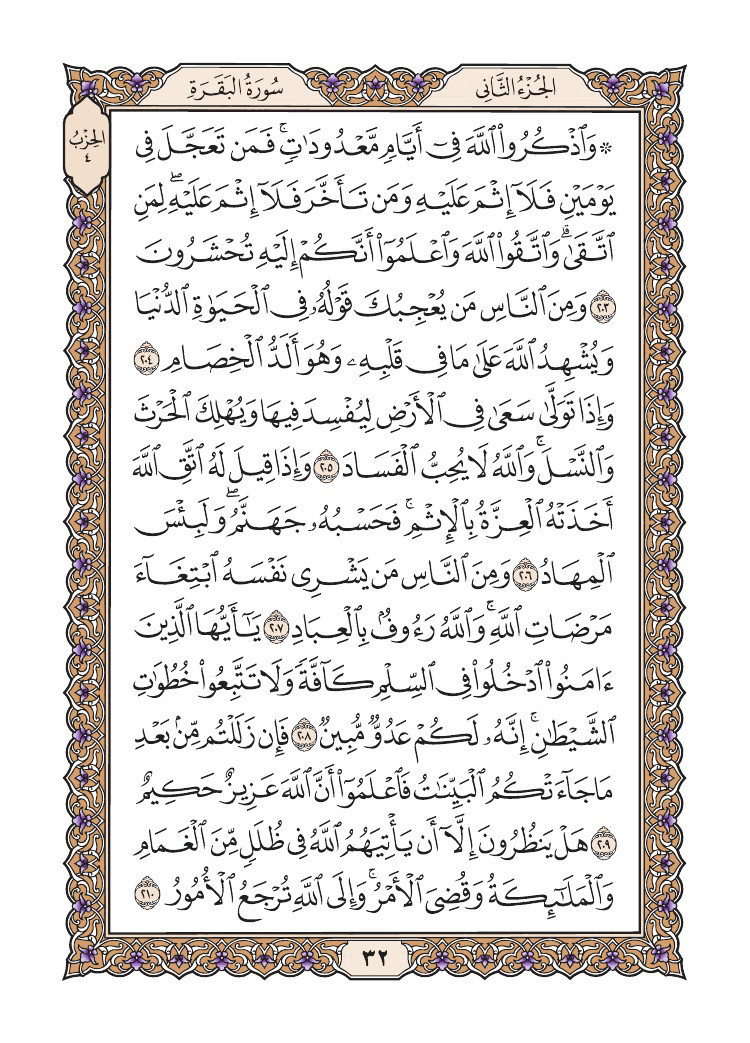 الجُزْءُ الثَّانِي
سُورَةُ البَقَرَةِ
الحِزْبُ
٤
۞ وَٱذْكُرُوا۟ ٱللَّهَ فِىٓ أَيَّامٍ مَّعْدُودَٰتٍ ۚ فَمَن تَعَجَّلَ فِى
يَوْمَيْنِ فَلَآ إِثْمَ عَلَيْهِ وَمَن تَأَخَّرَ فَلَآ إِثْمَ عَلَيْهِ ۖ لِمَنِ
ٱتَّقَىٰ ۗ وَٱتَّقُوا۟ ٱللَّهَ وَٱعْلَمُوٓا۟ أَنَّكُمْ إِلَيْهِ تُحْشَرُونَ
٢٠٣ وَمِنَ ٱلنَّاسِ مَن يُعْجِبُكَ قَوْلُهُۥ فِى ٱلْحَيَوٰةِ ٱلدُّنْيَا
وَيُشْهِدُ ٱللَّهَ عَلَىٰ مَا فِى قَلْبِهِۦ وَهُوَ أَلَدُّ ٱلْخِصَامِ ٢٠٤
وَإِذَا تَوَلَّىٰ سَعَىٰ فِى ٱلْأَرْضِ لِيُفْسِدَ فِيهَا وَيُهْلِكَ ٱلْحَرْثَ
وَٱلنَّسْلَ ۗ وَٱللَّهُ لَا يُحِبُّ ٱلْفَسَادَ ٢٠٥ وَإِذَا قِيلَ لَهُ ٱتَّقِ ٱللَّهَ
أَخَذَتْهُ ٱلْعِزَّةُ بِٱلْإِثْمِ ۚ فَحَسْبُهُۥ جَهَنَّمُ ۖ وَلَبِئْسَ
ٱلْمِهَادُ ٢٠٦ وَمِنَ ٱلنَّاسِ مَن يَشْرِى نَفْسَهُ ٱبْتِغَآءَ
مَرْضَاتِ ٱللَّهِ ۗ وَٱللَّهُ رَءُوفٌۢ بِٱلْعِبَادِ ٢٠٧ يَٰٓأَيُّهَا ٱلَّذِينَ
ءَامَنُوا۟ ٱدْخُلُوا۟ فِى ٱلسِّلْمِ كَآفَّةً وَلَا تَتَّبِعُوا۟ خُطُوَٰتِ
ٱلشَّيْطَٰنِ ۚ إِنَّهُۥ لَكُمْ عَدُوٌّ مُّبِينٌ ٢٠٨ فَإِن زَلَلْتُم مِّنۢ بَعْدِ
مَا جَآءَتْكُمُ ٱلْبَيِّنَٰتُ فَٱعْلَمُوٓا۟ أَنَّ ٱللَّهَ عَزِيزٌ حَكِيمٌ
٢٠٩ هَلْ يَنظُرُونَ إِلَّآ أَن يَأْتِيَهُمُ ٱللَّهُ فِى ظُلَلٍ مِّنَ ٱلْغَمَامِ
وَٱلْمَلَٰٓئِكَةُ وَقُضِىَ ٱلْأَمْرُ ۚ وَإِلَى ٱللَّهِ تُرْجَعُ ٱلْأُمُورُ ٢١٠
٣٢